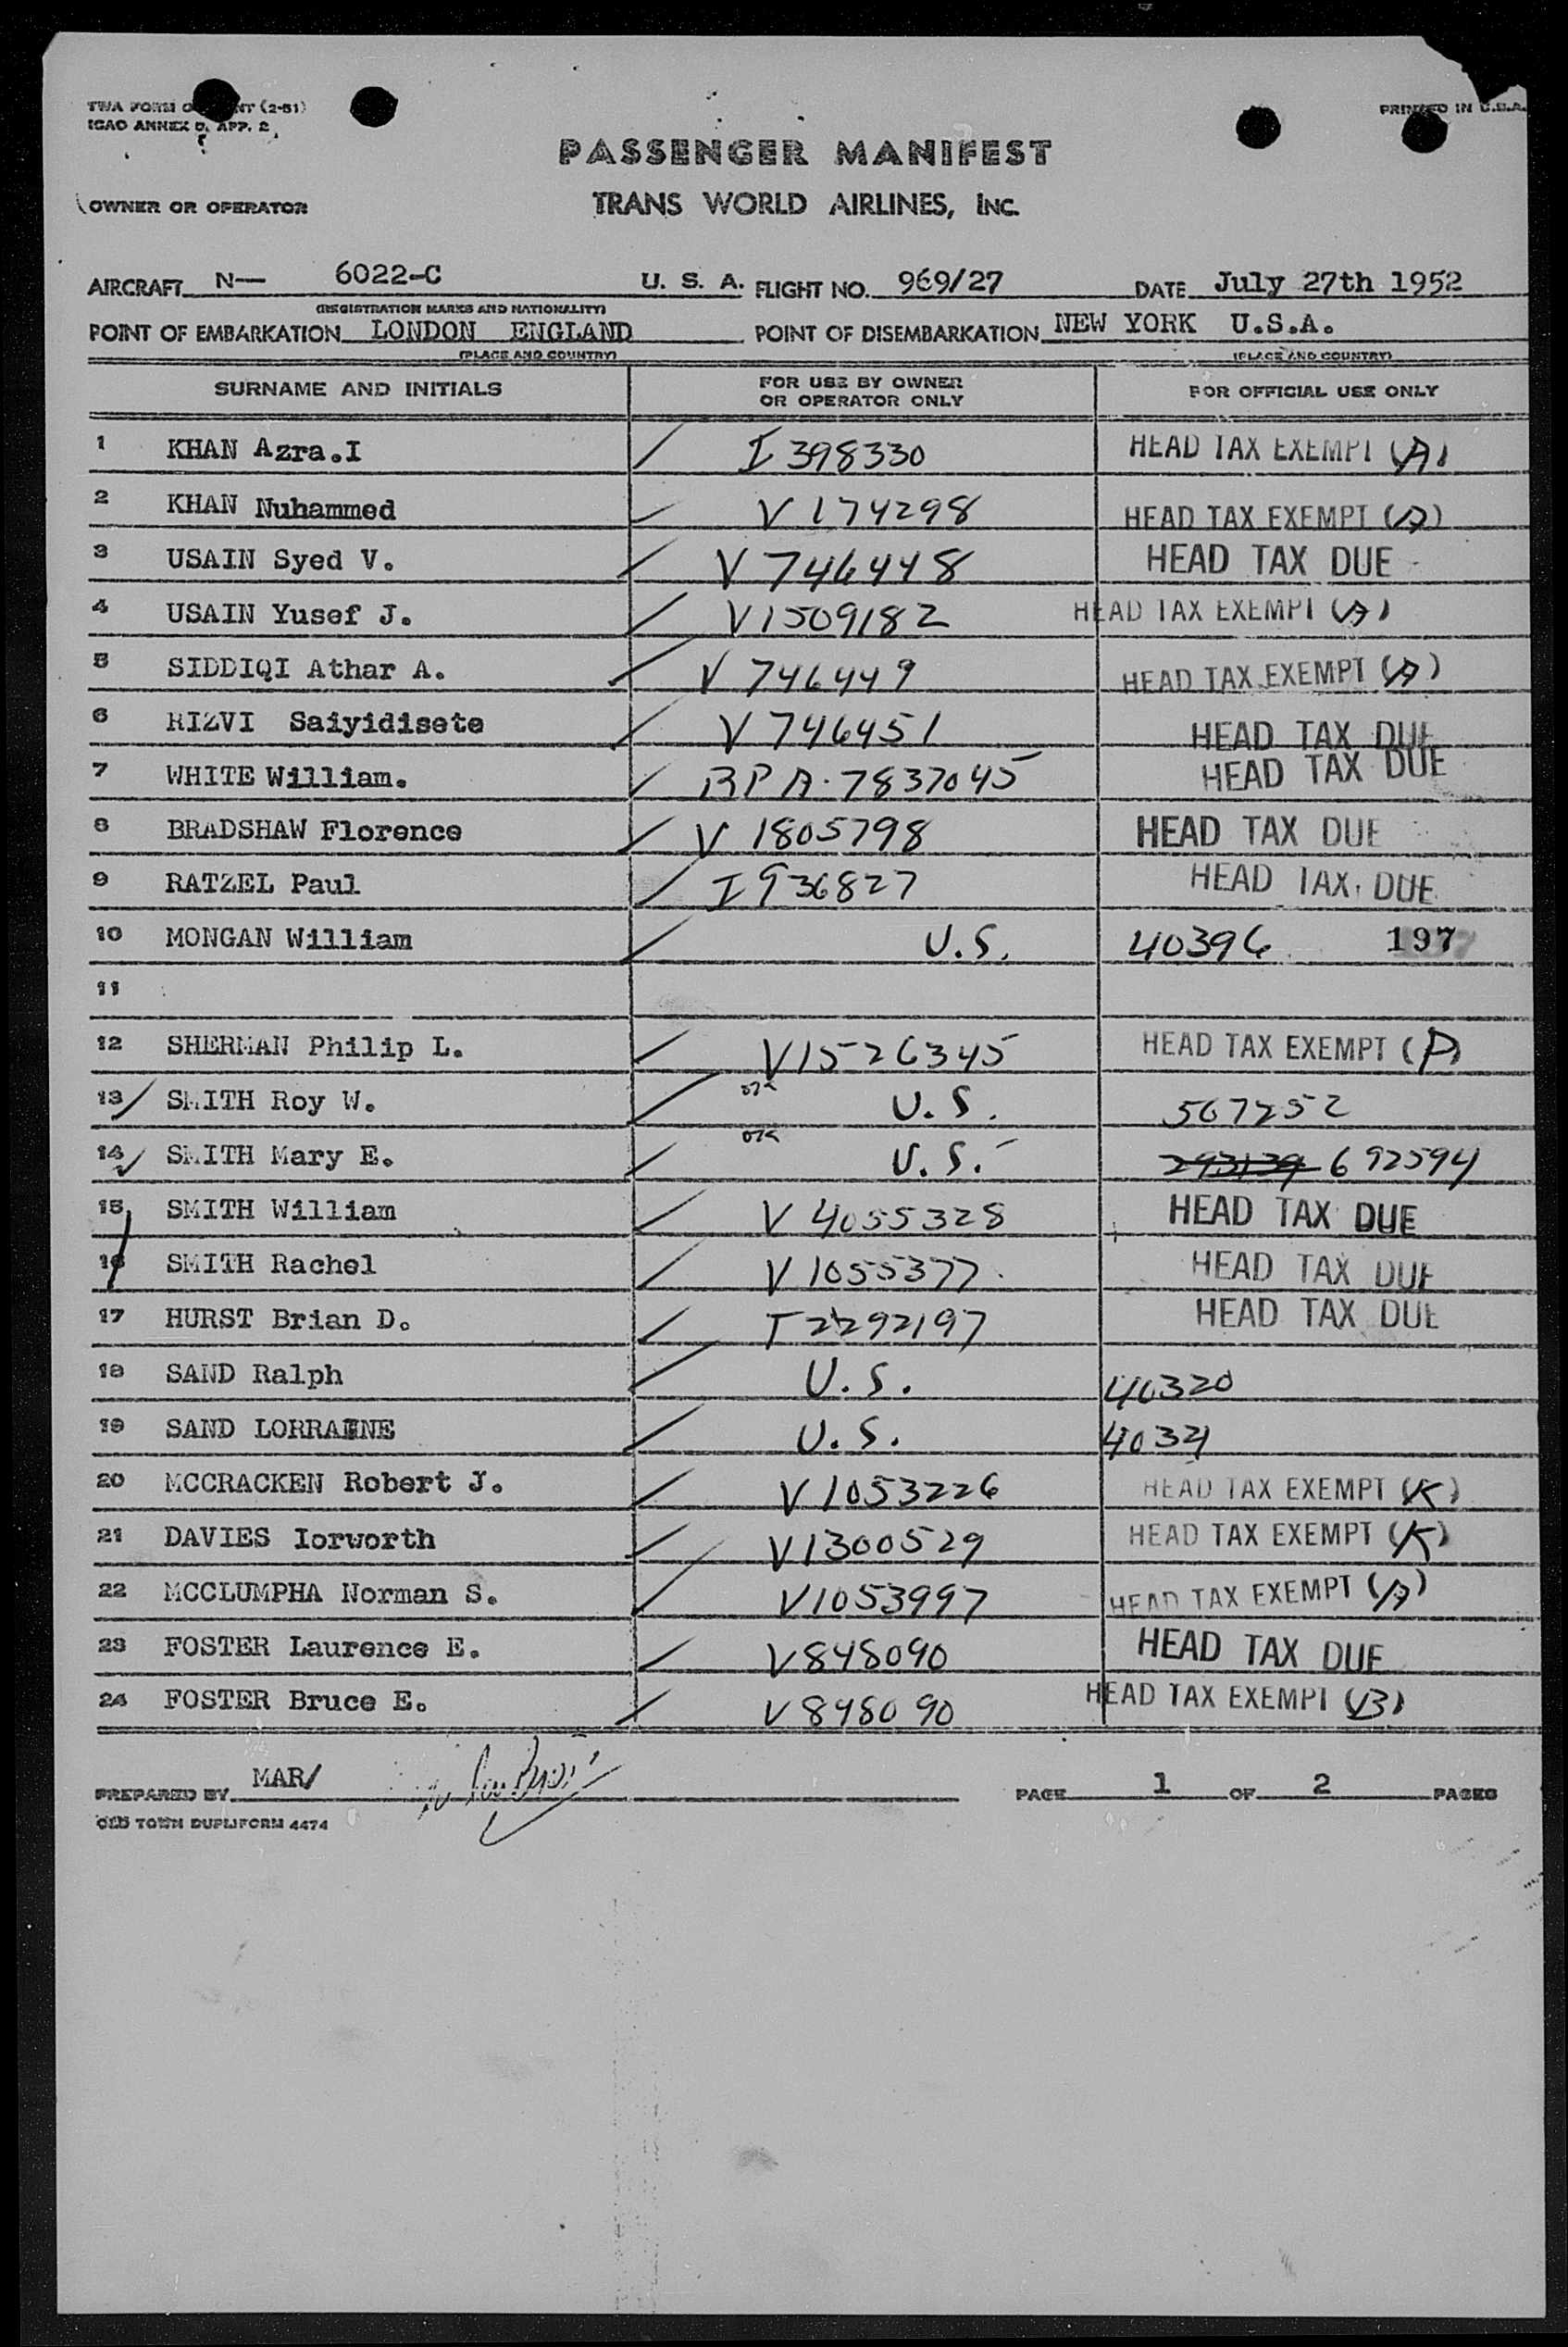 TWA FORM (2-51)
ICAO ANNEX 9, APP. 2
PRINTED IN U.S.A.
PASSENGER MANIFEST
OWNER OR OPERATOR TRANS WORLD AIRLINES, INC.
AIRCRAFT N— 6022-C U. S. A. FLIGHT NO. 969/27 DATE July 27th 1952
(REGISTRATION MARKS AND NATIONALITY)
POINT OF EMBARKATION LONDON ENGLAND POINT OF DISEMBARKATION NEW YORK U.S.A.
(PLACE AND COUNTRY) (PLACE AND COUNTRY)
SURNAME AND INITIALS FOR USE BY OWNER OR OPERATOR ONLY FOR OFFICIAL USE ONLY
1 KHAN Azra.I I 398330 HEAD TAX EXEMPT (A)
2 KHAN Nuhammed V 174298 HEAD TAX EXEMPT (A)
3 USAIN Syed V. V 746448 HEAD TAX DUE
4 USAIN Yusef J. V1509182 HEAD TAX EXEMPT (A)
5 SIDDIQI Athar A. V 746449 HEAD TAX EXEMPT (A)
6 RIZVI Saiyidisete V 746451 HEAD TAX DUE
7 WHITE William. BPA.7837045 HEAD TAX DUE
8 BRADSHAW Florence V 1805798 HEAD TAX DUE
9 RATZEL Paul I 936827 HEAD TAX DUE
10 MONGAN William U.S. 40396 197
11
12 SHERMAN Philip L. V1526345 HEAD TAX EXEMPT (P)
13 SMITH Roy W. U.S. 567252
14 SMITH Mary E. U.S. 293139 692594
15 SMITH William V 4055328 HEAD TAX DUE
16 SMITH Rachel V 1055377 HEAD TAX DUE
17 HURST Brian D. T2292197 HEAD TAX DUE
18 SAND Ralph U.S. 40320
19 SAND LORRAINE U.S.
20 MCCRACKEN Robert J. V1053226 HEAD TAX EXEMPT (K)
21 DAVIES Iorworth V1300529 HEAD TAX EXEMPT (K)
22 MCCLUMPHA Norman S. V1053997 HEAD TAX EXEMPT (A)
23 FOSTER Laurence E. V848090 HEAD TAX DUE
24 FOSTER Bruce E. V848090 HEAD TAX EXEMPT (B)
PREPARED BY MAR/ PAGE 1 OF 2 PAGES
OLD TOWN DUPLIFORM 4474